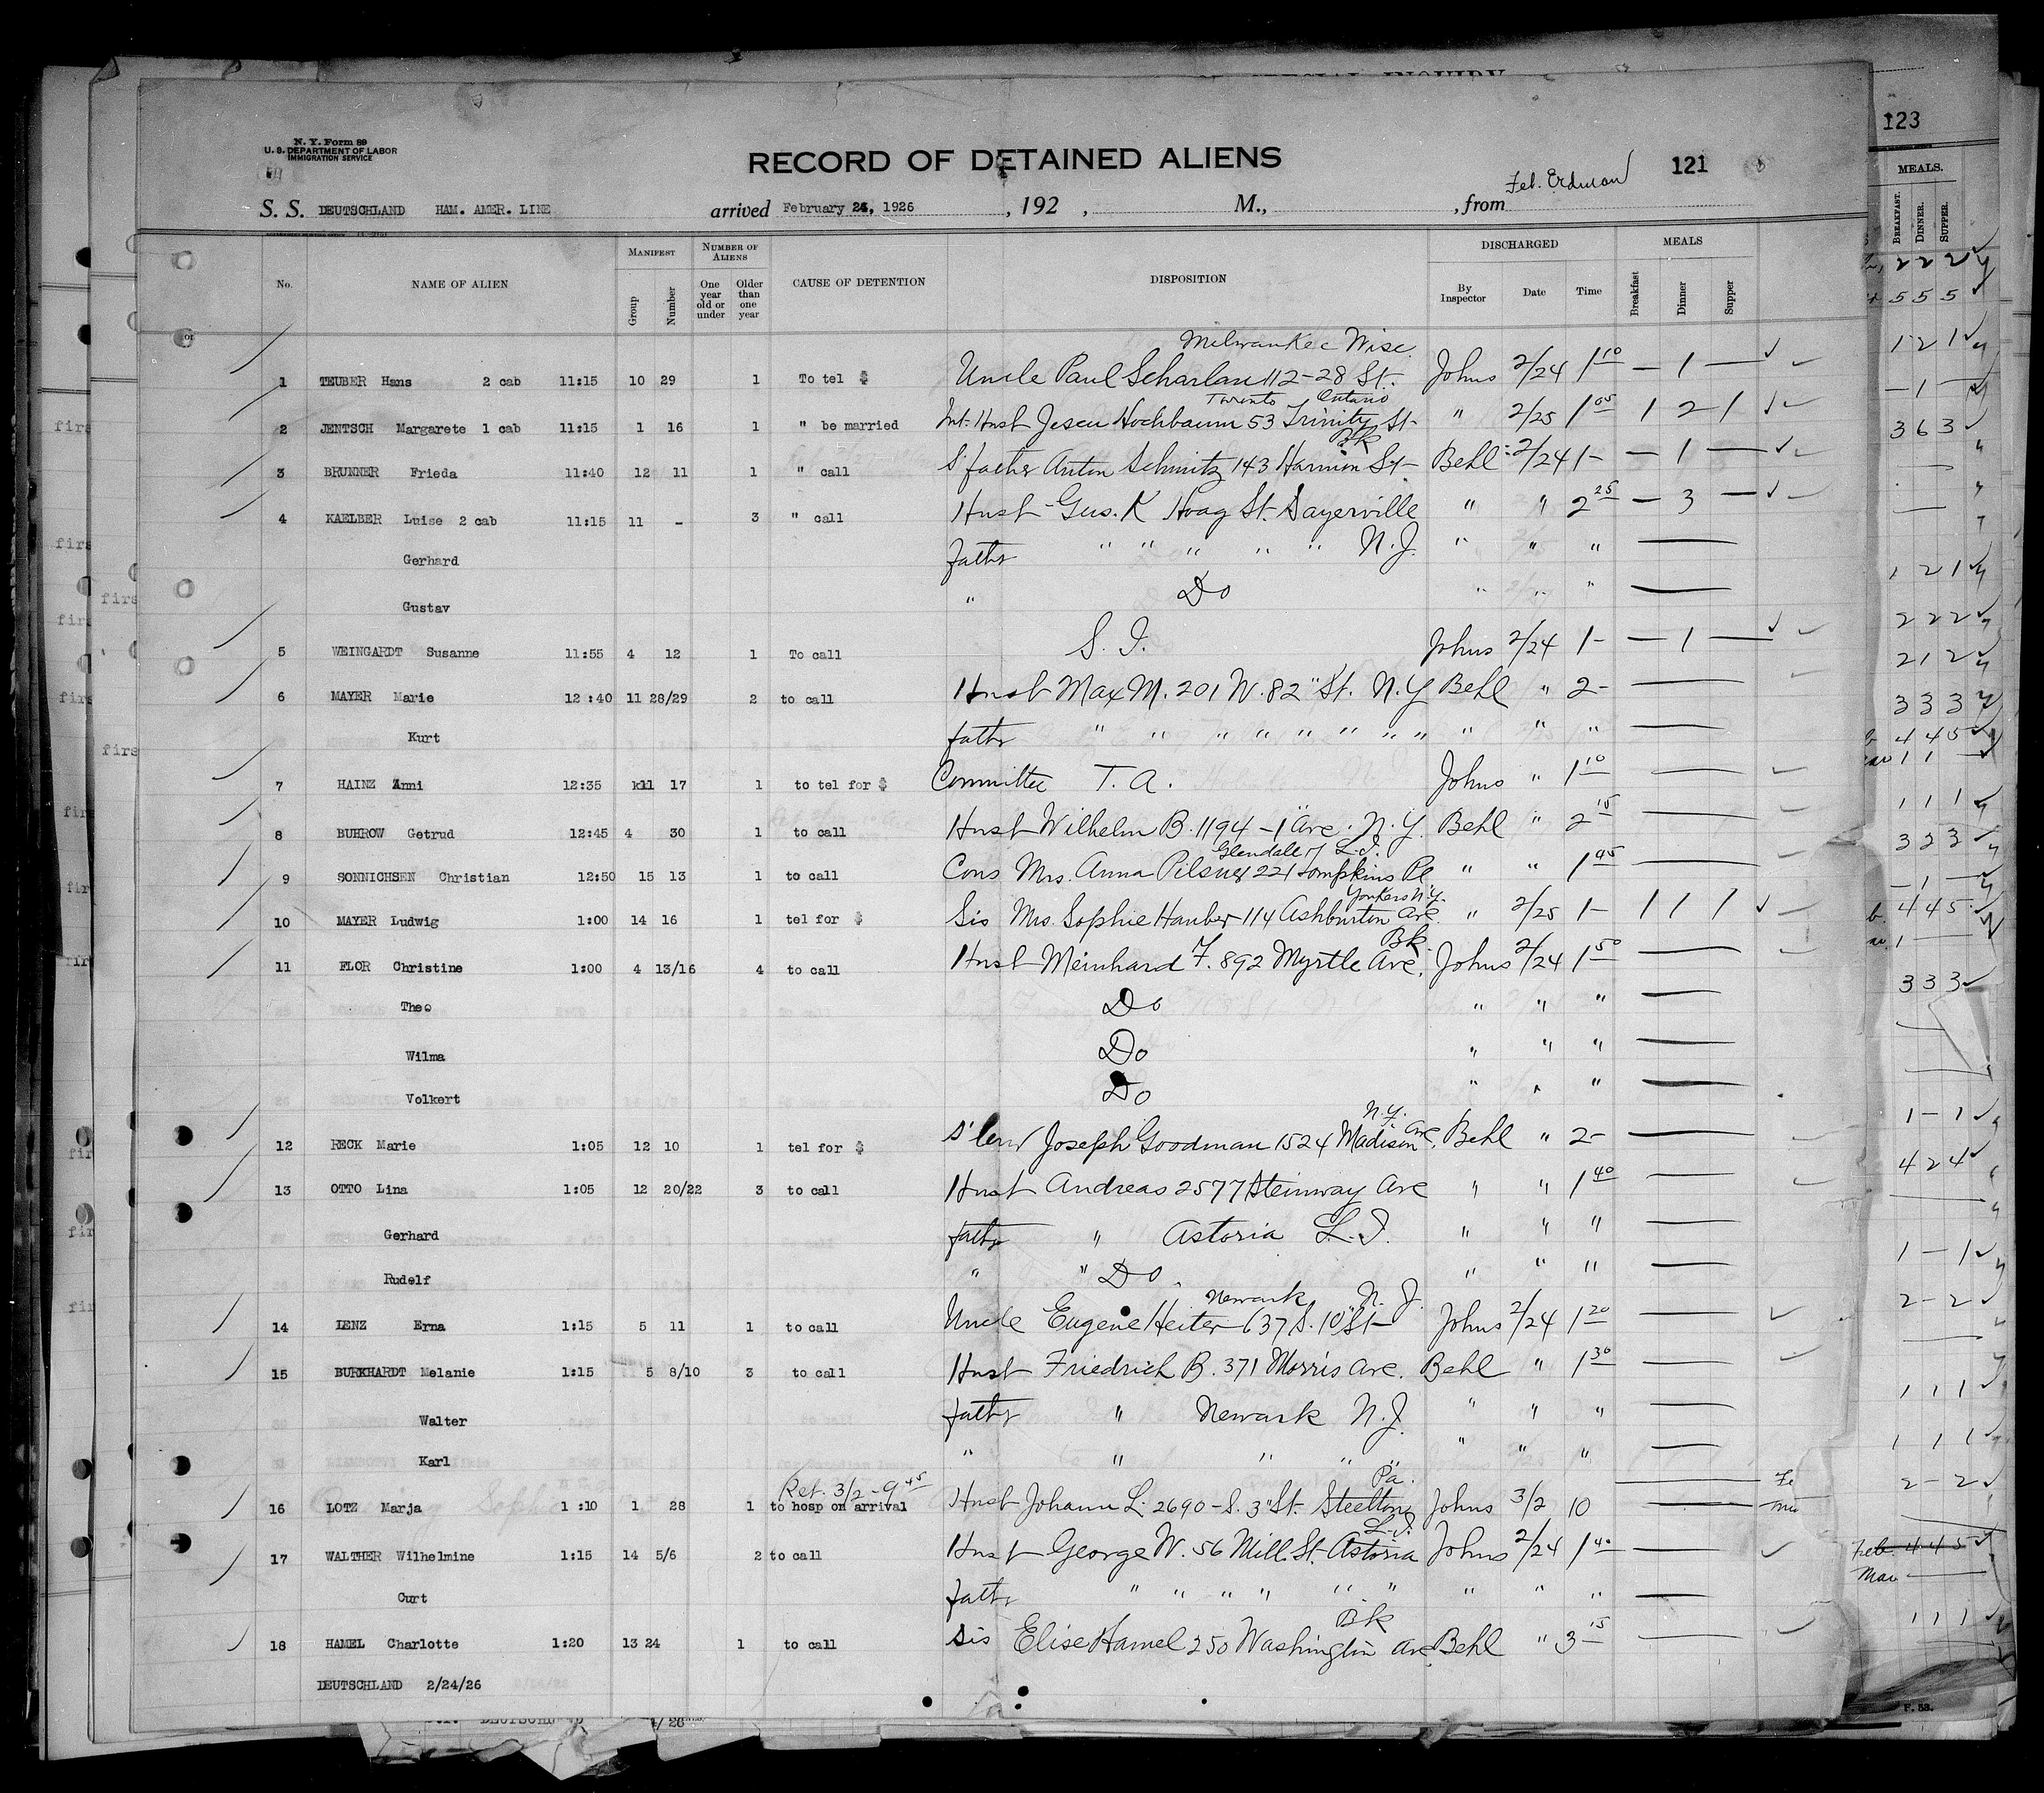 N. Y. Form 89
U. S. DEPARTMENT OF LABOR
IMMIGRATION SERVICE
RECORD OF DETAINED ALIENS
121
123
S. S. DEUTSCHLAND HAM. AMER. LINE arrived February 24, 1926 , 192 , M., , from
No. NAME OF ALIEN MANIFEST Group Number NUMBER OF ALIENS One year old or under Older than one year CAUSE OF DETENTION DISPOSITION DISCHARGED By Inspector Date Time MEALS Breakfast Dinner Supper
MEALS. BREAKFAST. DINNER. SUPPER.
Milwaukee Wisc.
1 TEUBER Hans 2 cab 11:15 10 29 1 To tel $ Uncle Paul Scharlau 112-28 St. Johns 2/24 1 10 — 1 —
Toronto Ontario
2 JENTSCH Margarete 1 cab 11:15 1 16 1 " be married Int. Husb Hochbaum 53 Trinity St- " 2/25 1 05 1 2 1
Bk
3 BRUNNER Frieda 11:40 12 11 1 " call S'father Anton Schmitz 143 Harmon St- Behl 2/24 1- — 1 —
4 KAELBER Luise 2 cab 11:15 11 - 3 " call Husb Gus. K Hoag St. Sayerville " " 2 25 — 3 —
Gerhard father " " " " " N.J. " " " —
Gustav " Do " " " —
5 WEINGARDT Susanne 11:55 4 12 1 To call S. I. Johns 2/24 1- — 1 —
6 MAYER Marie 12:40 11 28/29 2 to call Husb Max M. 201 W. 82" St. N.Y Behl " 2- —
Kurt father " " " " " " " " " " " —
7 HAINZ Anni 12:35 11 17 1 to tel for $ Committee T. A. Johns " 1 10 —
8 BUHROW Getrud 12:45 4 30 1 to call Husb Wilhelm B. 1194 - 1" Ave. N.Y. Behl " 2 15 —
Glendale L.I.
9 SONNICHSEN Christian 12:50 15 13 1 to call Cous Mrs. Anna Pilsner 221 Tompkins Pl " " 1 45 —
Yonkers N.Y.
10 MAYER Ludwig 1:00 14 16 1 tel for $ Sis Mrs. Sophie Hauber 114 Ashburton Ave. " 2/25 1- 1 1 1
Bk.
11 FLOR Christine 1:00 4 13/16 4 to call Husb Meinhard F. 892 Myrtle Ave. Johns 2/24 1 50 —
Theo Do " " " —
Wilma Do " " " —
Volkert Do " " " —
N.Y.
12 RECK Marie 1:05 12 10 1 tel for $ Joseph Goodman 1524 Madison Ave. Behl " 2- —
13 OTTO Lina 1:05 12 20/22 3 to call Husb Andreas 2577 Steinway Ave " " 1 40 —
Gerhard father " Astoria L.I. " " " —
Rudelf " " Do. " " " —
Newark N.J.
14 LENZ Erna 1:15 5 11 1 to call Uncle Eugene Heiter 637 S. 10" St- Johns 2/24 1 20 —
15 BURKHARDT Melanie 1:15 5 8/10 3 to call Husb Friedrich B. 371 Morris Ave. Behl " 1 30 —
Walter father " Newark N.J. " " " —
Karl " " " " " " " —
Ret. 3/2 - 9 45 Pa.
16 LOTZ Marja 1:10 1 28 1 to hosp on arrival Husb Johann L. 2690 - S. 3" St. Steelton Johns 3/2 10 —
L.I.
17 WALTHER Wilhelmine 1:15 14 5/6 2 to call Husb George W. 56 Mill. St- Astoria Johns 2/24 1 40 —
Curt father " " " " " " " " " —
Bk
18 HAMEL Charlotte 1:20 13 24 1 to call Sis Elise Hamel 250 Washington Ave. Behl " 3 15 —
DEUTSCHLAND 2/24/26
F. 53.